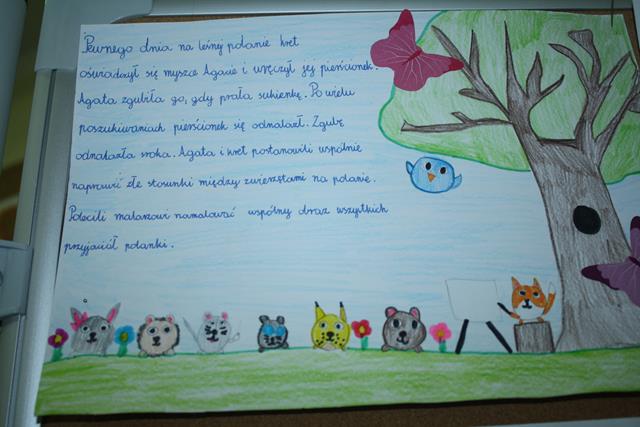 Pewnego dnia na leśnej polanie kret
oświadczył się myszce Agacie i wręczył jej pierścionek.
Agata zgubiła go, gdy prała sukienkę. Po wielu
poszukiwaniach pierścionek się odnalazł. Zgubę
odnalazła sroka. Agata i kret postanowili wspólnie
naprawić złe stosunki między zwierzętami na polanie.
Polecili malarzowi namalować wspólny obraz wszystkich
przyjaciół polanki.